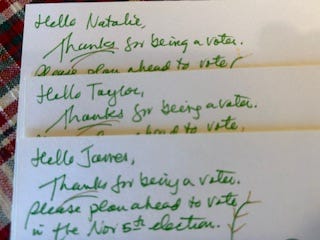 Hello Natalie,
Thanks for being a voter.
please plan ahead to vote
Hello Taylor,
Thanks for being a voter.
please plan ahead to vote,
Hello James,
Thanks for being a voter.
please plan ahead to vote
in the Nov 5th election.